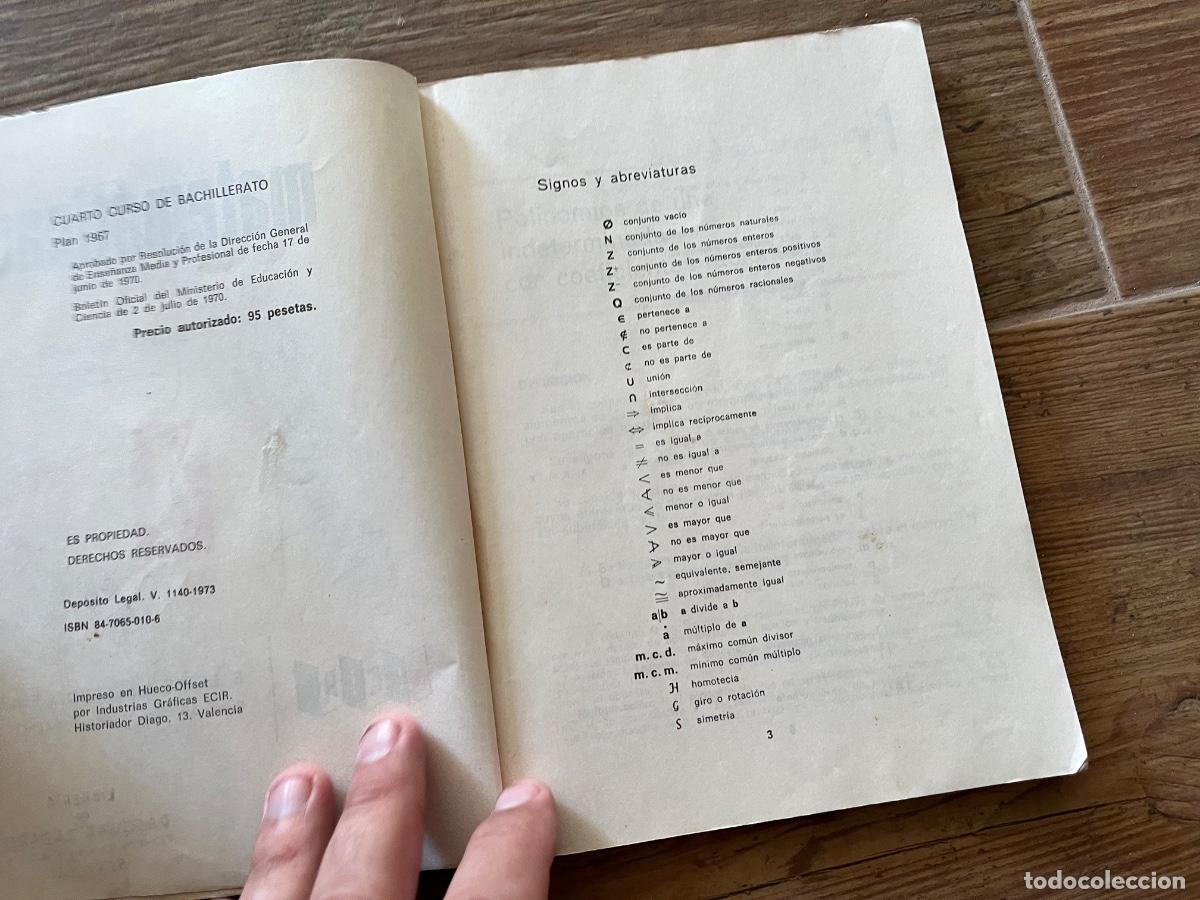 CUARTO CURSO DE BACHILLERATO
Plan 1967
Aprobado por Resolución de la Dirección General
de Enseñanza Media y Profesional de fecha 17 de
junio de 1970.
Boletín Oficial del Ministerio de Educación y
Ciencia de 2 de julio de 1970.
Precio autorizado: 95 pesetas.
ES PROPIEDAD.
DERECHOS RESERVADOS.
Depósito Legal. V. 1140-1973
ISBN 84-7065-010-6
Impreso en Hueco-Offset
por Industrias Gráficas ECIR.
Historiador Diago, 13. Valencia
Signos y abreviaturas
Ø conjunto vacío
N conjunto de los números naturales
Z conjunto de los números enteros
Z⁺ conjunto de los números enteros positivos
Z⁻ conjunto de los números enteros negativos
Q conjunto de los números racionales
∈ pertenece a
∉ no pertenece a
⊂ es parte de
⊄ no es parte de
∪ unión
∩ intersección
⇒ implica
⇔ implica recíprocamente
= es igual a
≠ no es igual a
< es menor que
≮ no es menor que
≤ menor o igual
> es mayor que
≯ no es mayor que
≥ mayor o igual
~ equivalente, semejante
≅ aproximadamente igual
a|b a divide a b
ȧ múltiplo de a
m.c.d. máximo común divisor
m.c.m. mínimo común múltiplo
H homotecia
G giro o rotación
S simetría
3
todocoleccion